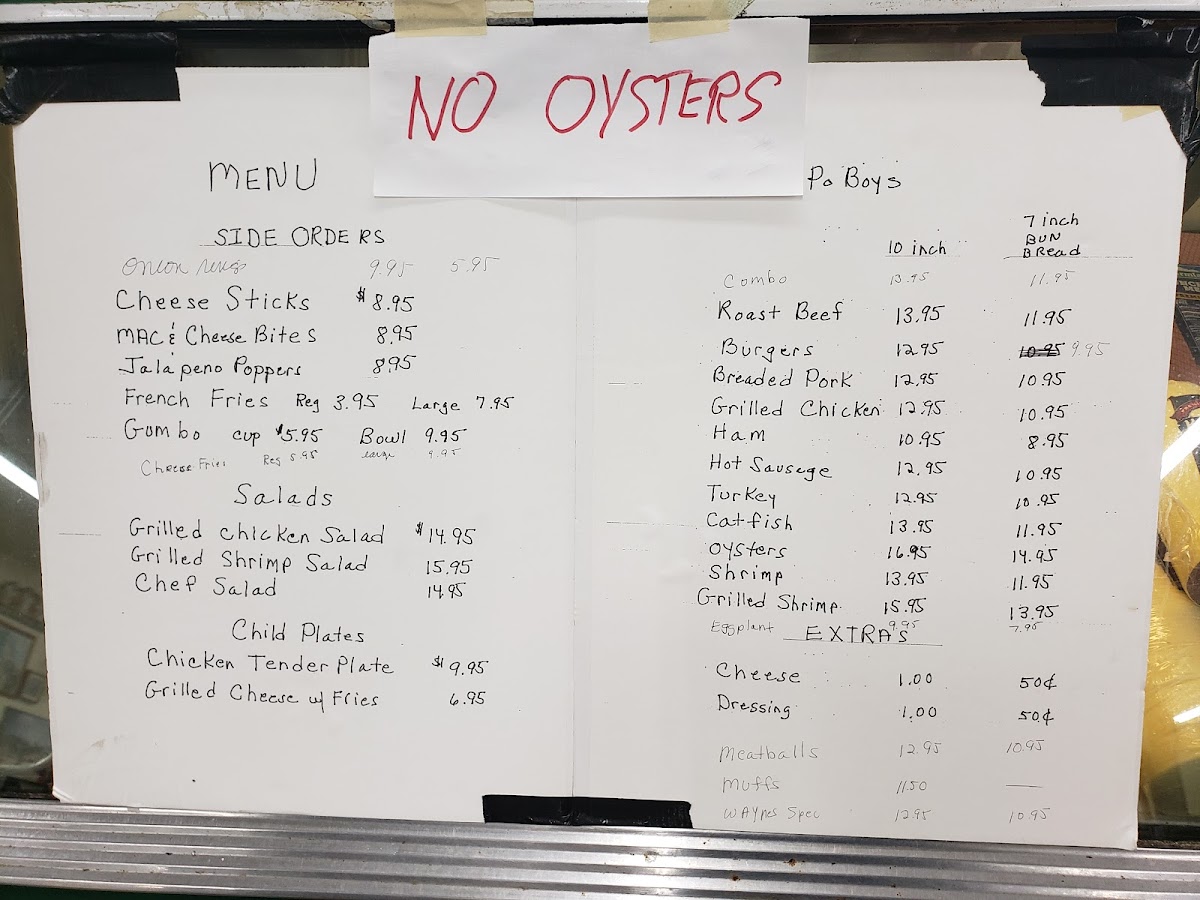 NO OYSTERS
MENU
SIDE ORDERS
Onion rings 9.95 5.95
Cheese Sticks $8.95
MAC & Cheese Bites 8.95
Jalapeno Poppers 8.95
French Fries Reg 3.95 Large 7.95
Gumbo cup $5.95 Bowl 9.95
Cheese Fries Reg 5.95 large 9.95
Salads
Grilled chicken Salad $14.95
Grilled Shrimp Salad 15.95
Chef Salad 14.95
Child Plates
Chicken Tender Plate $9.95
Grilled Cheese w/ Fries 6.95
Po Boys
10 inch 7 inch
BUN
BRead
Combo 13.95 11.95
Roast Beef 13.95 11.95
Burgers 12.95 10.95 9.95
Breaded Pork 12.95 10.95
Grilled Chicken 12.95 10.95
Ham 10.95 8.95
Hot Sausage 12.95 10.95
Turkey 12.95 10.95
Catfish 13.95 11.95
oysters 16.95 14.95
Shrimp 13.95 11.95
Grilled Shrimp 15.95 13.95
Eggplant 9.95 7.95
EXTRA'S
Cheese 1.00 50¢
Dressing 1.00 50¢
Meatballs 12.95 10.95
Muffs 11.50 —
WAYNES Spec 12.95 10.95